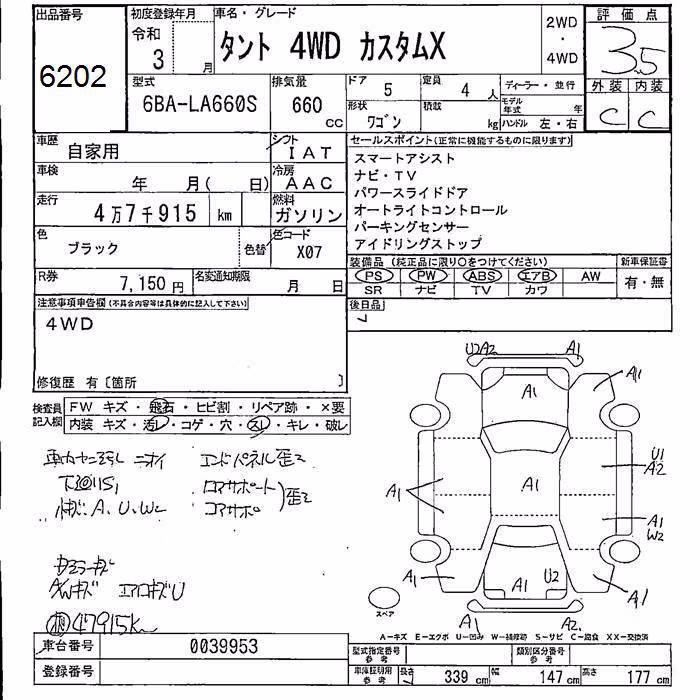 出品番号
6202
初度登録年月
令和
3 月
車名・グレード
タント 4WD カスタムX
2WD
・
4WD
評価点
3.5
外装 内装
C C
型式
6BA-LA660S
排気量
660 CC
ドア 5
定員 4 人
形状 ワゴン
積載 kg
ディーラー・並行
モデル年式 年
ハンドル 左・右
車歴 自家用
シフト IAT
車検 年 月( 日)
冷房 AAC
走行 4万7千915 km
燃料 ガソリン
色 ブラック
色替
色コード X07
R券 7,150 円
名変通知期限 月 日
セールスポイント(正常に機能するものに限ります)
スマートアシスト
ナビ・TV
パワースライドドア
オートライトコントロール
パーキングセンサー
アイドリングストップ
装備品 (純正品に限り○をつけてください)
新車保証書
PS PW ABS エアB AW
SR ナビ TV カワ
有・無
後日品
注意事項申告欄(不具合内容等は具体的に記入して下さい)
4WD
修復歴 有〔箇所 〕
検査員記入欄
FW キズ・飛石・ヒビ割・リペア跡・×要
内装 キズ・汚レ・コゲ・穴・スレ・キレ・破レ
車内ヤニ汚レ ニオイ
エンドパネル歪ミ
下廻リS1
小キズ A、U、W2
ロアサポート
コアサポ
)歪ミ
ガラスキズ
AWキズ エアロキズU
47915K
U2 A2 A1
A1 A1
A1 A1 U1 A2
A1 W2
A1 A1 U2 A1
A1 A2
スペア
A-キズ E-エクボ U-凹み W-補修跡 S-サビ C-腐食 XX-交換済
車台番号 0039953
登録番号
型式指定番号 参考
類別区分番号 参考
車庫証明用 参考
長さ 339 cm
幅 147 cm
高さ 177 cm